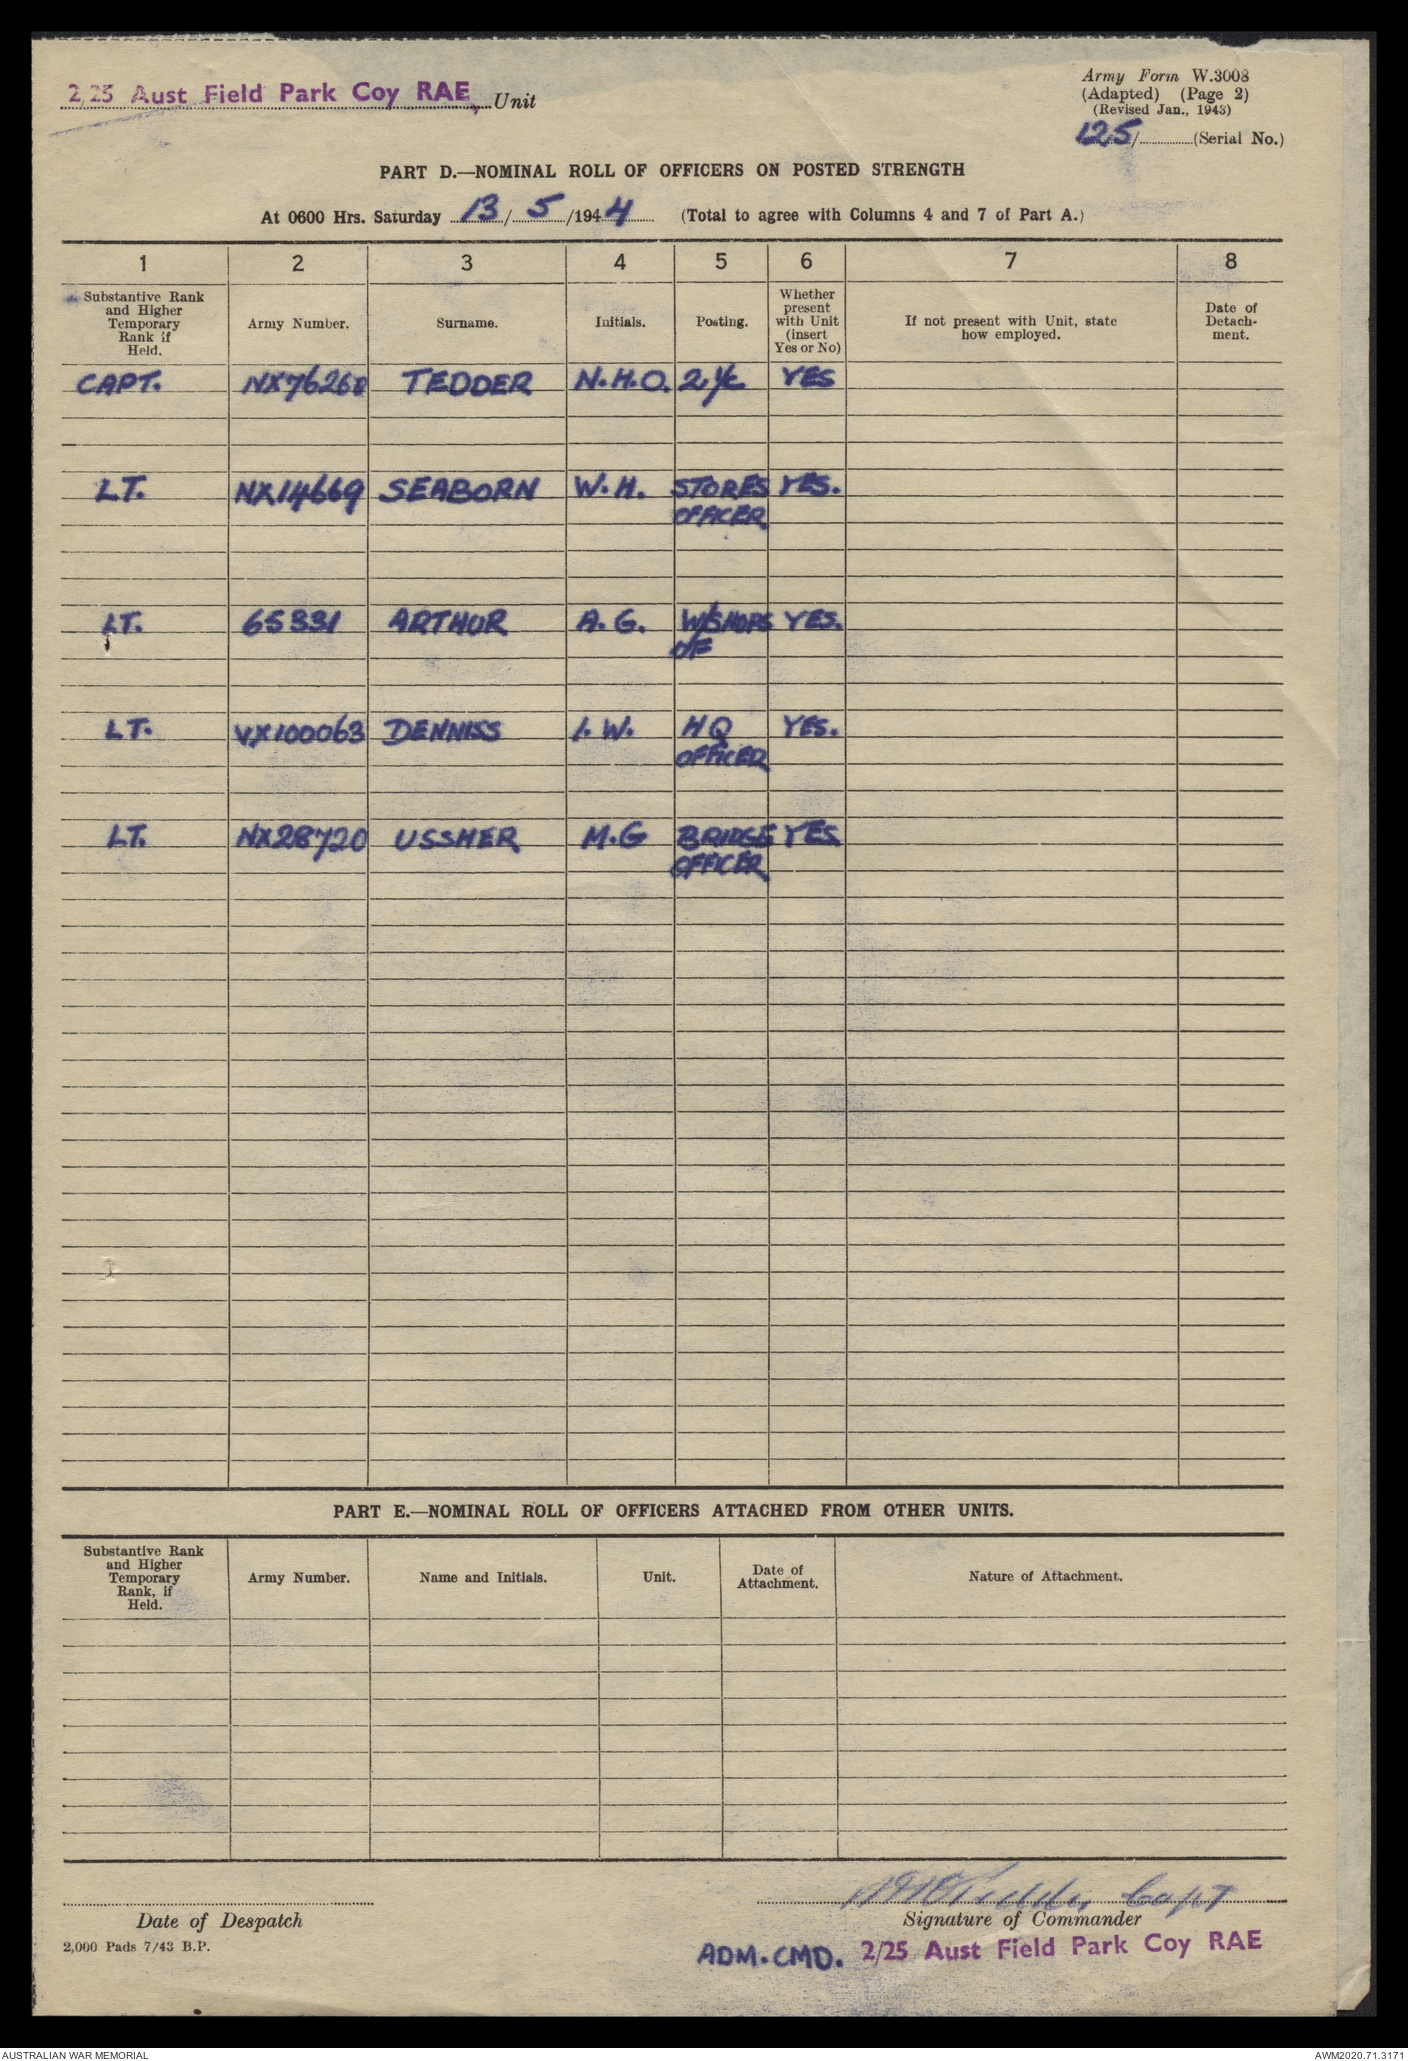 2/25 Aust Field Park Coy RAE, Unit
Army Form W.3008
(Adapted) (Page 2)
(Revised Jan., 1943)
125/ (Serial No.)
PART D.—NOMINAL ROLL OF OFFICERS ON POSTED STRENGTH
At 0600 Hrs. Saturday 13/5/1944 (Total to agree with Columns 4 and 7 of Part A.)
1 2 3 4 5 6 7 8
Substantive Rank and Higher Temporary Rank if Held. Army Number. Surname. Initials. Posting. Whether present with Unit (insert Yes or No) If not present with Unit, state how employed. Date of Detach-ment.
CAPT. NX76268 TEDDER N.H.O. 2 i/c YES
LT. NX14669 SEABORN W.H. STORES YES.
OFFICER
LT. 65331 ARTHUR A.G. W/SHOPS YES.
LT. VX100063 DENNISS I.W. HQ YES.
OFFICER
LT. NX28720 USSHER M.G BRIDGE YES
OFFICER
PART E.—NOMINAL ROLL OF OFFICERS ATTACHED FROM OTHER UNITS.
Substantive Rank and Higher Temporary Rank, if Held. Army Number. Name and Initials. Unit. Date of Attachment. Nature of Attachment.
Capt
Date of Despatch
Signature of Commander
2,000 Pads 7/43 B.P.
ADM. CMD. 2/25 Aust Field Park Coy RAE
AUSTRALIAN WAR MEMORIAL
AWM2020.71.3171